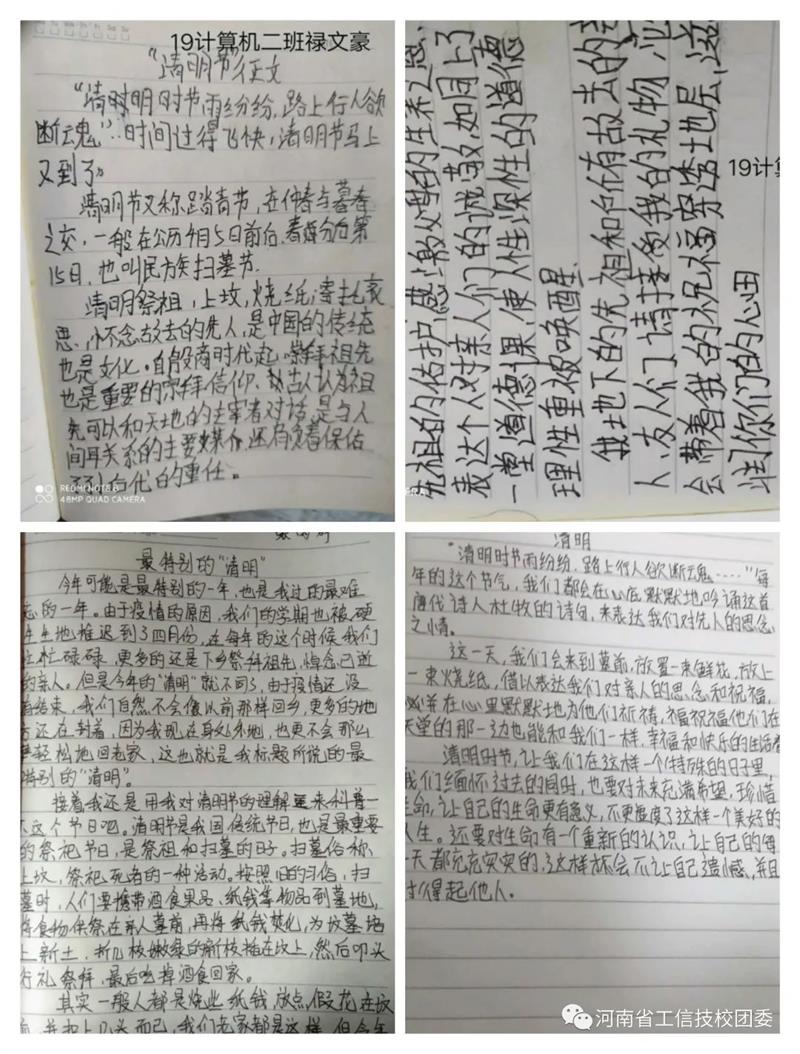 19计算机二班禄文豪
"清明节"征文
"清时明时节雨纷纷,路上行人欲
断魂".时间过得飞快,清明节马上
又到了。
清明节又称踏青节,在仲春与暮春
之交,一般在公历4月5日前后.春分后第
15日,也叫民族扫墓节.
清明祭祖,上坟,烧纸,寄托哀
思,怀念故去的先人,是中国的传统
也是文化。自殷商时代起,崇拜祖先
也是重要的崇拜信仰.古人认为祖
先可以和天地的主宰者对话,是与人
间关系的主要媒介.还肩负着保佑
后代的重任。
REDMI NOTE 8
48MP QUAD CAMERA
先祖的佑护,感激父母的生养之恩.
表达个人对亲人们的诚敬,如同上了
一堂道德课,使人性灵性的道德
理性重被唤醒.
我地下的先祖和所有故去的亲
人、友人们,请接受我的礼物,它
会带着我的祝福穿透地层,滋
润你们的心田
19计算
最特别的"清明"
今年可能是最特别的一年,也是我过的最难
忘的一年。由于疫情的原因,我们的学期也被硬
生生地推迟到了四月份,在每年的这个时候我们
忙忙碌碌,更多的还是下乡祭拜祖先,悼念已逝
的亲人。但是今年的"清明"就不同了,由于疫情还没
有结束,我们自然不会像以前那样回乡,更多的地
方还在封着,因为我现在身处外地,也更不会那么
轻松地回老家,这也就是我标题所说的最
特别的"清明"。
接着我还是用我对清明节的理解来科普一
下这个节日吧。清明节是我国传统节日,也是最重要
的祭祀节日,是祭祖和扫墓的日子。扫墓俗称
上坟,祭祀死者的一种活动。按照旧的习俗,扫
墓时,人们要携带酒食果品、纸钱等物品到墓地,
将食物供祭在亲人墓前,再将纸钱焚化,为坟墓培
上新土,折几枝嫩绿的新枝插在坟上,然后叩头
行礼祭拜,最后吃掉酒食回家。
其实一般人都是烧些纸钱,放点假花在坟
前,并扣上几头而已,我们老家都是这样,但今年
清明
"清明时节雨纷纷,路上行人欲断魂……"每
年的这个节气,我们都会在心底默默地吟诵这首
唐代诗人杜牧的诗句,来表达我们对先人的思念
之情。
这一天,我们会来到墓前,放置一束鲜花,放上
一束烧纸,借以表达我们对亲人的思念和祝福,
并在心里默默地为他们祈祷,祝福他们在
天堂的那一边也能和我们一样,幸福和快乐的生活着
清明时节,让我们在这样一个特殊的日子里,
我们缅怀过去的同时,也要对未来充满希望,珍惜
生命,让自己的生命更有意义,不要虚度了这样一个美好的
人生。还要对生命有一个重新的认识,让自己的每
一天都充充实实的,这样才会不让自己遗憾,并且
对得起他人。
河南省工信技校团委